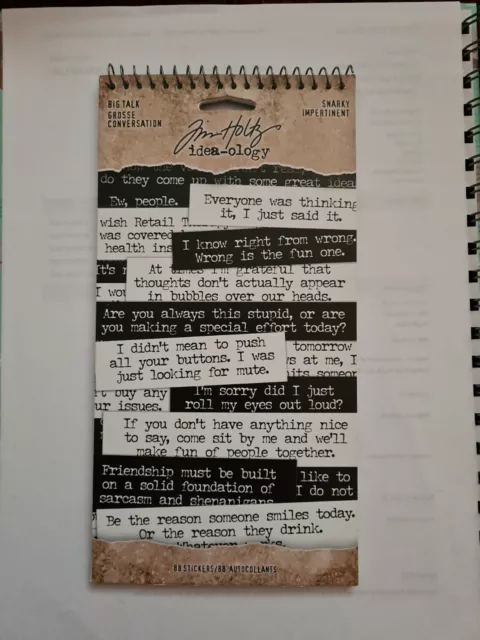 BIG TALK
GROSSE
CONVERSATION
SNARKY
IMPERTINENT
Tim Holtz
idea-ology
do they come up with some great idea
Ew, people.
Everyone was thinking
it, I just said it.
wish Retail
was covered
health ins
I know right from wrong.
Wrong is the fun one.
It's
I wou
At times I'm grateful that
thoughts don't actually appear
in bubbles over our heads.
Are you always this stupid, or are
you making a special effort today?
I didn't mean to push
all your buttons. I was
just looking for mute.
tomorrow
ys at me, I
its someon
't buy any
ur issues.
I'm sorry did I just
roll my eyes out loud?
If you don't have anything nice
to say, come sit by me and we'll
make fun of people together.
Friendship must be built
on a solid foundation of
sarcasm and shenanigans.
like to
I do not
Be the reason someone smiles today.
Or the reason they drink.
Whatever
88 STICKERS/88 AUTOCOLLANTS